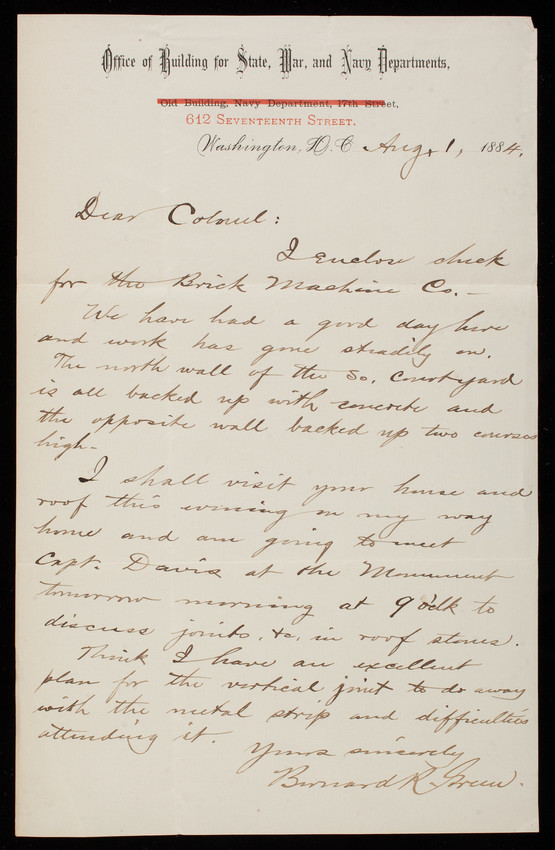 Office of Building for State, War, and Navy Departments,
Old Building, Navy Department, 17th Street,
612 SEVENTEENTH STREET.
Washington, D. C. Aug. 1, 1884.
Dear Colonel:
I enclose check
for the Brick Machine Co. —
We have had a good day here
and work has gone steadily on.
The north wall of the So. Courtyard
is all backed up with concrete and
the opposite wall backed up two courses
high —
I shall visit your house and
roof this evening on my way
home and am going to meet
Capt. Davis at the Monument
tomorrow morning at 9 o'clk to
discuss joints, &c. in roof stones.
Think I have an excellent
plan for the vertical joint to do away
with the metal strip and difficulties
attending it.
Yours sincerely
Bernard R. Green.